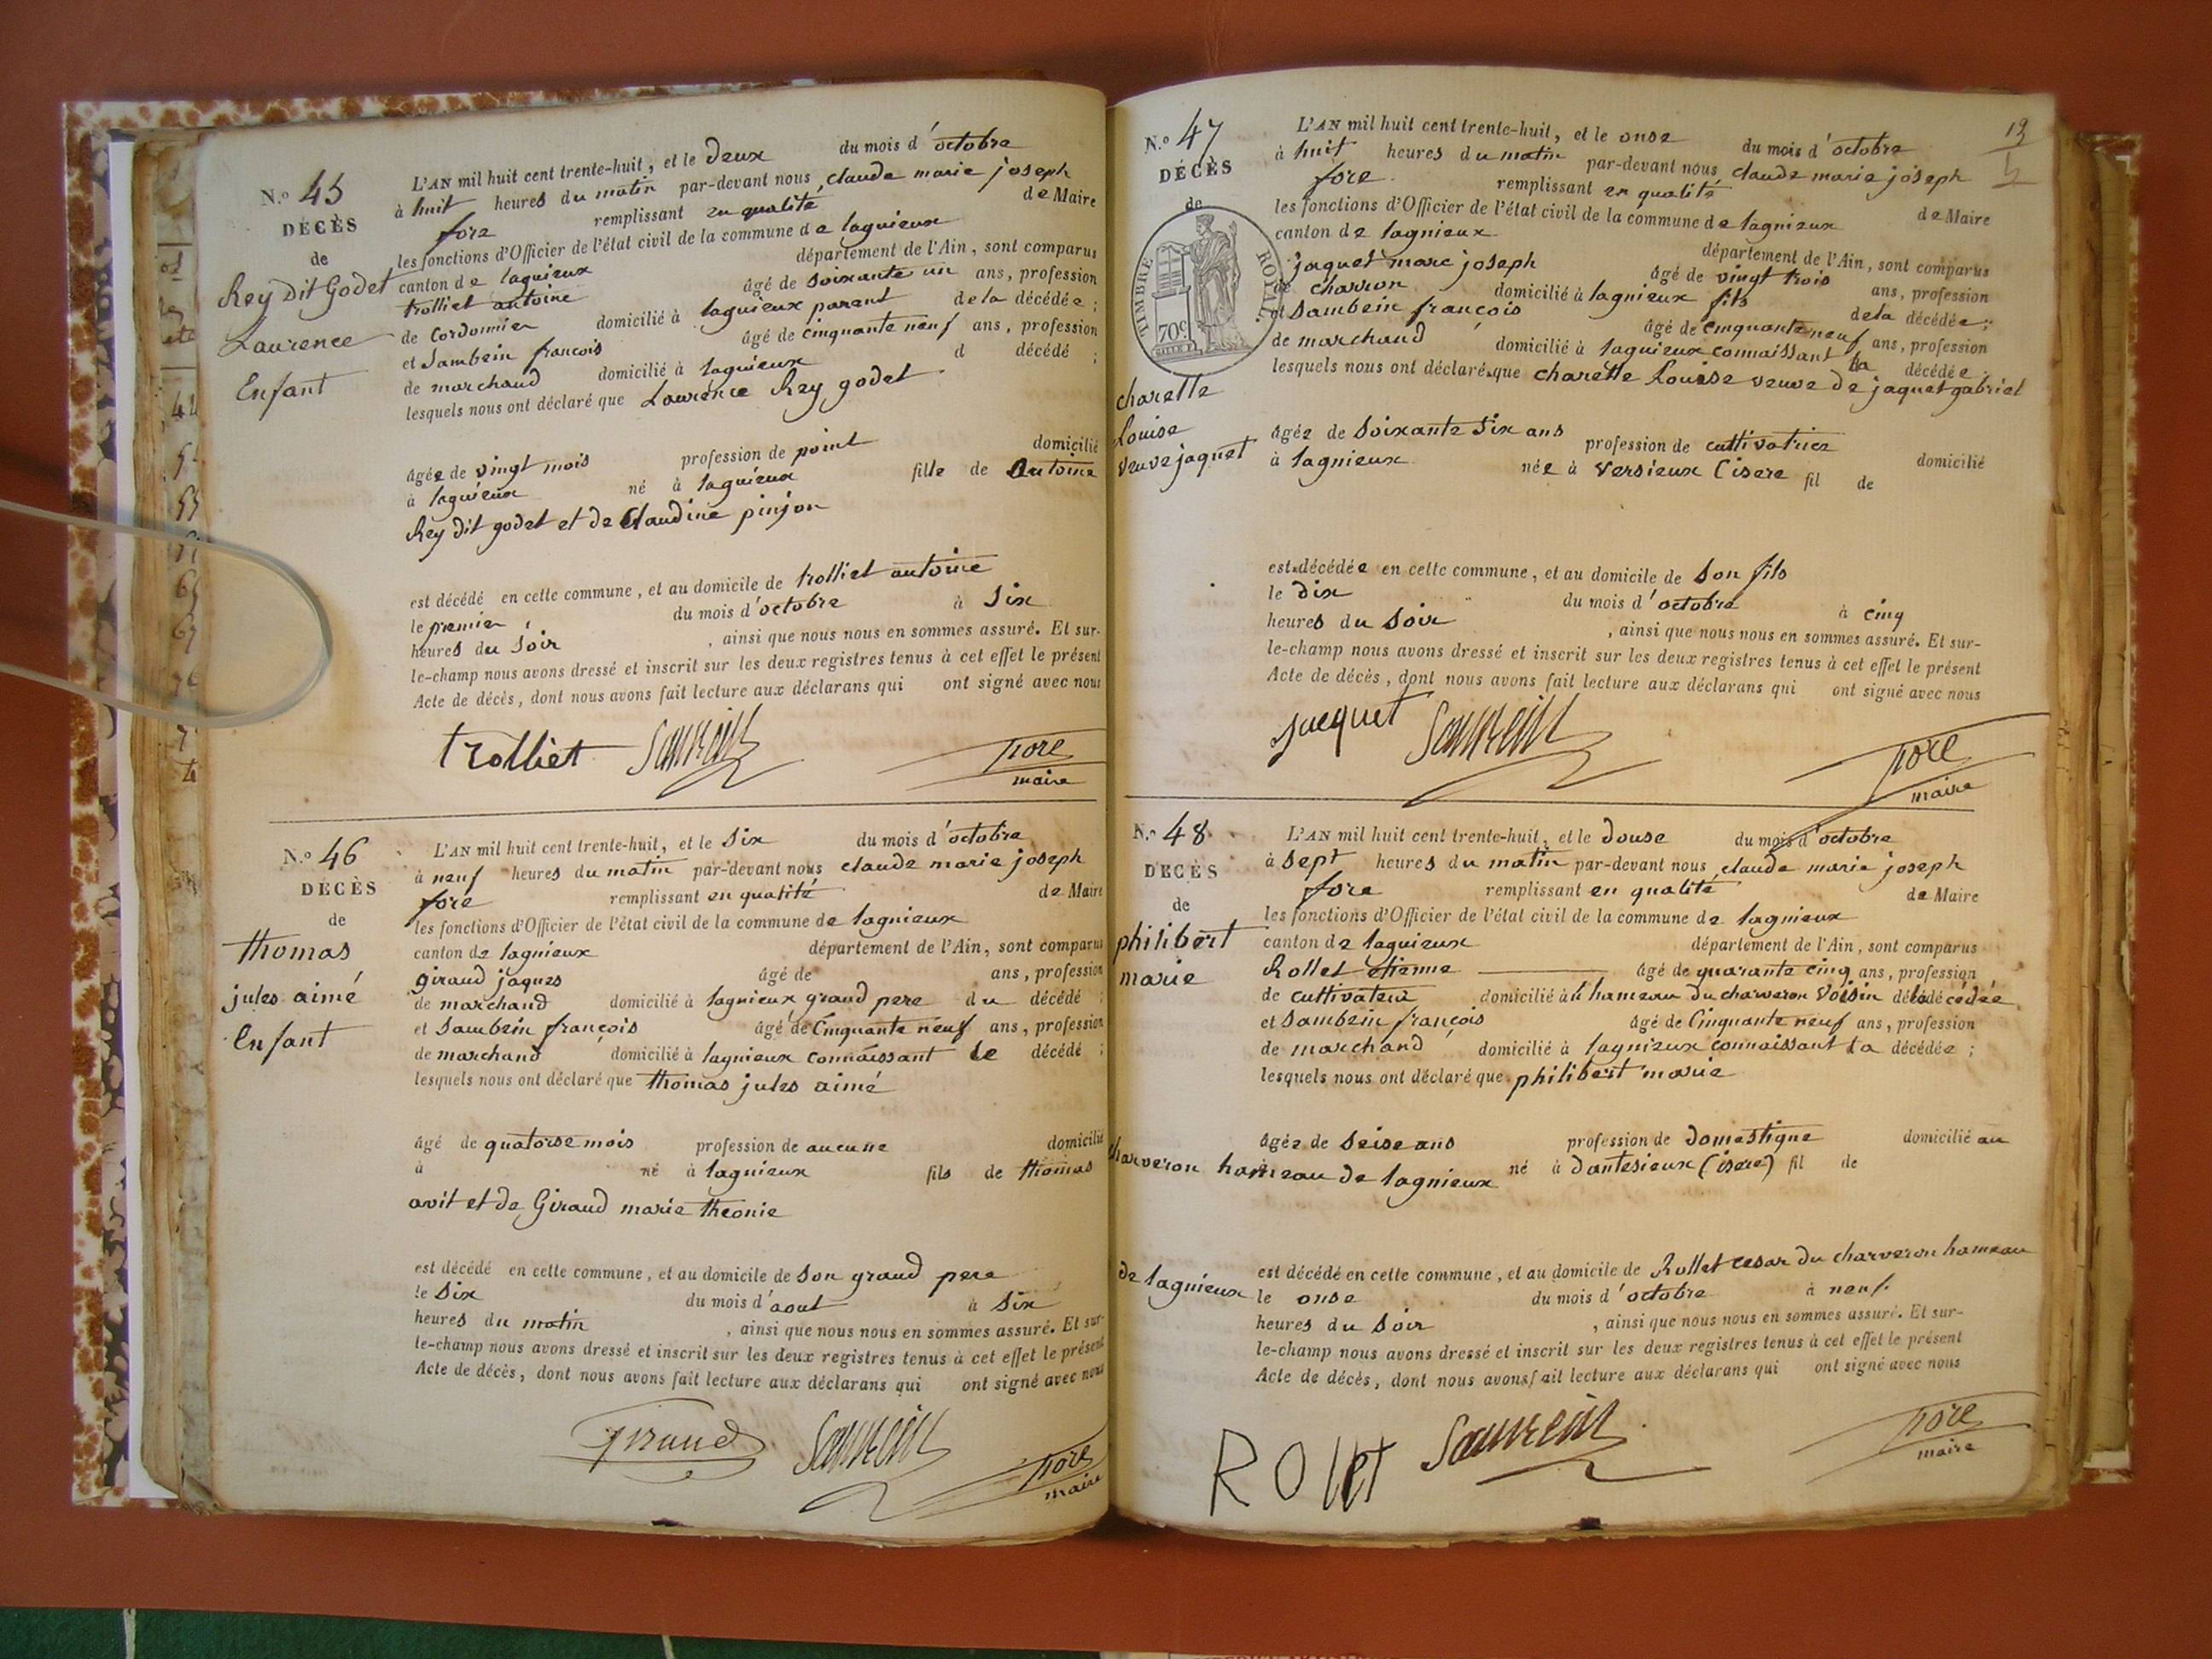 N.° 45
DÉCÈS
de
Rey Dit Godet
Laurence
Enfant
L'AN mil huit cent trente-huit, et le deux du mois d'octobre
à huit heures du matin par-devant nous claude marie joseph
fore remplissant en qualité de Maire
les fonctions d'Officier de l'état civil de la commune de lagnieux
canton de lagnieux département de l'Ain, sont comparus
trolliet antoine âgé de soixante un ans, profession
de Cordonnier domicilié à lagnieux parent de la décédée ;
et Sambein françois âgé de cinquante neuf ans, profession
de marchand domicilié à lagnieux d décédé ;
lesquels nous ont déclaré que Laurence Rey godet
âgée de vingt mois profession de point domicilié
à lagnieux né à lagnieux fille de Antoine
Rey dit godet et de Claudine pinjon
est décédé en cette commune, et au domicile de trolliet antoine
le premier du mois d'octobre à Six
heures du Soir , ainsi que nous nous en sommes assuré. Et sur-
le-champ nous avons dressé et inscrit sur les deux registres tenus à cet effet le présent
Acte de décès, dont nous avons fait lecture aux déclarans qui ont signé avec nous
trolliet fore
maire
N.° 46
DÉCÈS
de
thomas
jules aimé
Enfant
L'AN mil huit cent trente-huit, et le Six du mois d'octobre
à neuf heures du matin par-devant nous claude marie joseph
fore remplissant en qualité de Maire
les fonctions d'Officier de l'état civil de la commune de lagnieux
canton de lagnieux département de l'Ain, sont comparus
giraud jaques âgé de ans, profession
de marchand domicilié à lagnieux grand pere du décédé ;
et Sambein françois âgé de Cinquante neuf ans, profession
de marchand domicilié à lagnieux connaissant le décédé ;
lesquels nous ont déclaré que thomas jules aimé
âgé de quatorse mois profession de aucune domicilié
à né à lagnieux fils de thomas
avit et de Giraud marie theonie
est décédé en cette commune, et au domicile de Son grand pere
le Six du mois d'aout à Six
heures du matin , ainsi que nous nous en sommes assuré. Et sur-
le-champ nous avons dressé et inscrit sur les deux registres tenus à cet effet le présent
Acte de décès, dont nous avons fait lecture aux déclarans qui ont signé avec nous
Giraud fore
maire
19
N.° 47
DÉCÈS
de
TIMBRE ROYAL.
70c.
charette
Louise
veuve jaquet
L'AN mil huit cent trente-huit, et le onse du mois d'octobre
à huit heures du matin par-devant nous claude marie joseph
fore remplissant en qualité de Maire
les fonctions d'Officier de l'état civil de la commune de lagnieux
canton de lagnieux département de l'Ain, sont comparus
jaquet marc joseph âgé de vingt trois ans, profession
de charron domicilié à lagnieux fils de la décédée ;
et Sambein françois âgé de cinquante neuf ans, profession
de marchand domicilié à lagnieux connaissant la décédée
lesquels nous ont déclaré que charette Louise veuve de jaquet gabriel
âgée de Soixante Six ans profession de cultivatrice domicilié
à lagnieux née à versieux (isere fil de
est décédée en cette commune, et au domicile de Son fils
le dix du mois d'octobre à cinq
heures du Soir , ainsi que nous nous en sommes assuré. Et sur-
le-champ nous avons dressé et inscrit sur les deux registres tenus à cet effet le présent
Acte de décès, dont nous avons fait lecture aux déclarans qui ont signé avec nous
jacquet fore
maire
N.° 48
DÉCÈS
de
philibert
marie
L'AN mil huit cent trente-huit, et le douse du mois d'octobre
à Sept heures du matin par-devant nous claude marie joseph
fore remplissant en qualité de Maire
les fonctions d'Officier de l'état civil de la commune de lagnieux
canton de lagnieux département de l'Ain, sont comparus
Rollet etienne âgé de quarante cinq ans, profession
de cultivateur domicilié à hameau du charveron voisin de la décédée
et Sambein françois âgé de Cinquante neuf ans, profession
de marchand domicilié à lagnieux connaissant la décédée ;
lesquels nous ont déclaré que philibert marie
âgée de Seise ans profession de domestique domicilié au
charveron hameau de lagnieux né à dantesieux (isere) fil de
est décédé en cette commune, et au domicile de Rollet cesar du charveron hameau
de lagnieux le onse du mois d'octobre à neuf
heures du Soir , ainsi que nous nous en sommes assuré. Et sur-
le-champ nous avons dressé et inscrit sur les deux registres tenus à cet effet le présent
Acte de décès, dont nous avons fait lecture aux déclarans qui ont signé avec nous
ROllet fore
maire